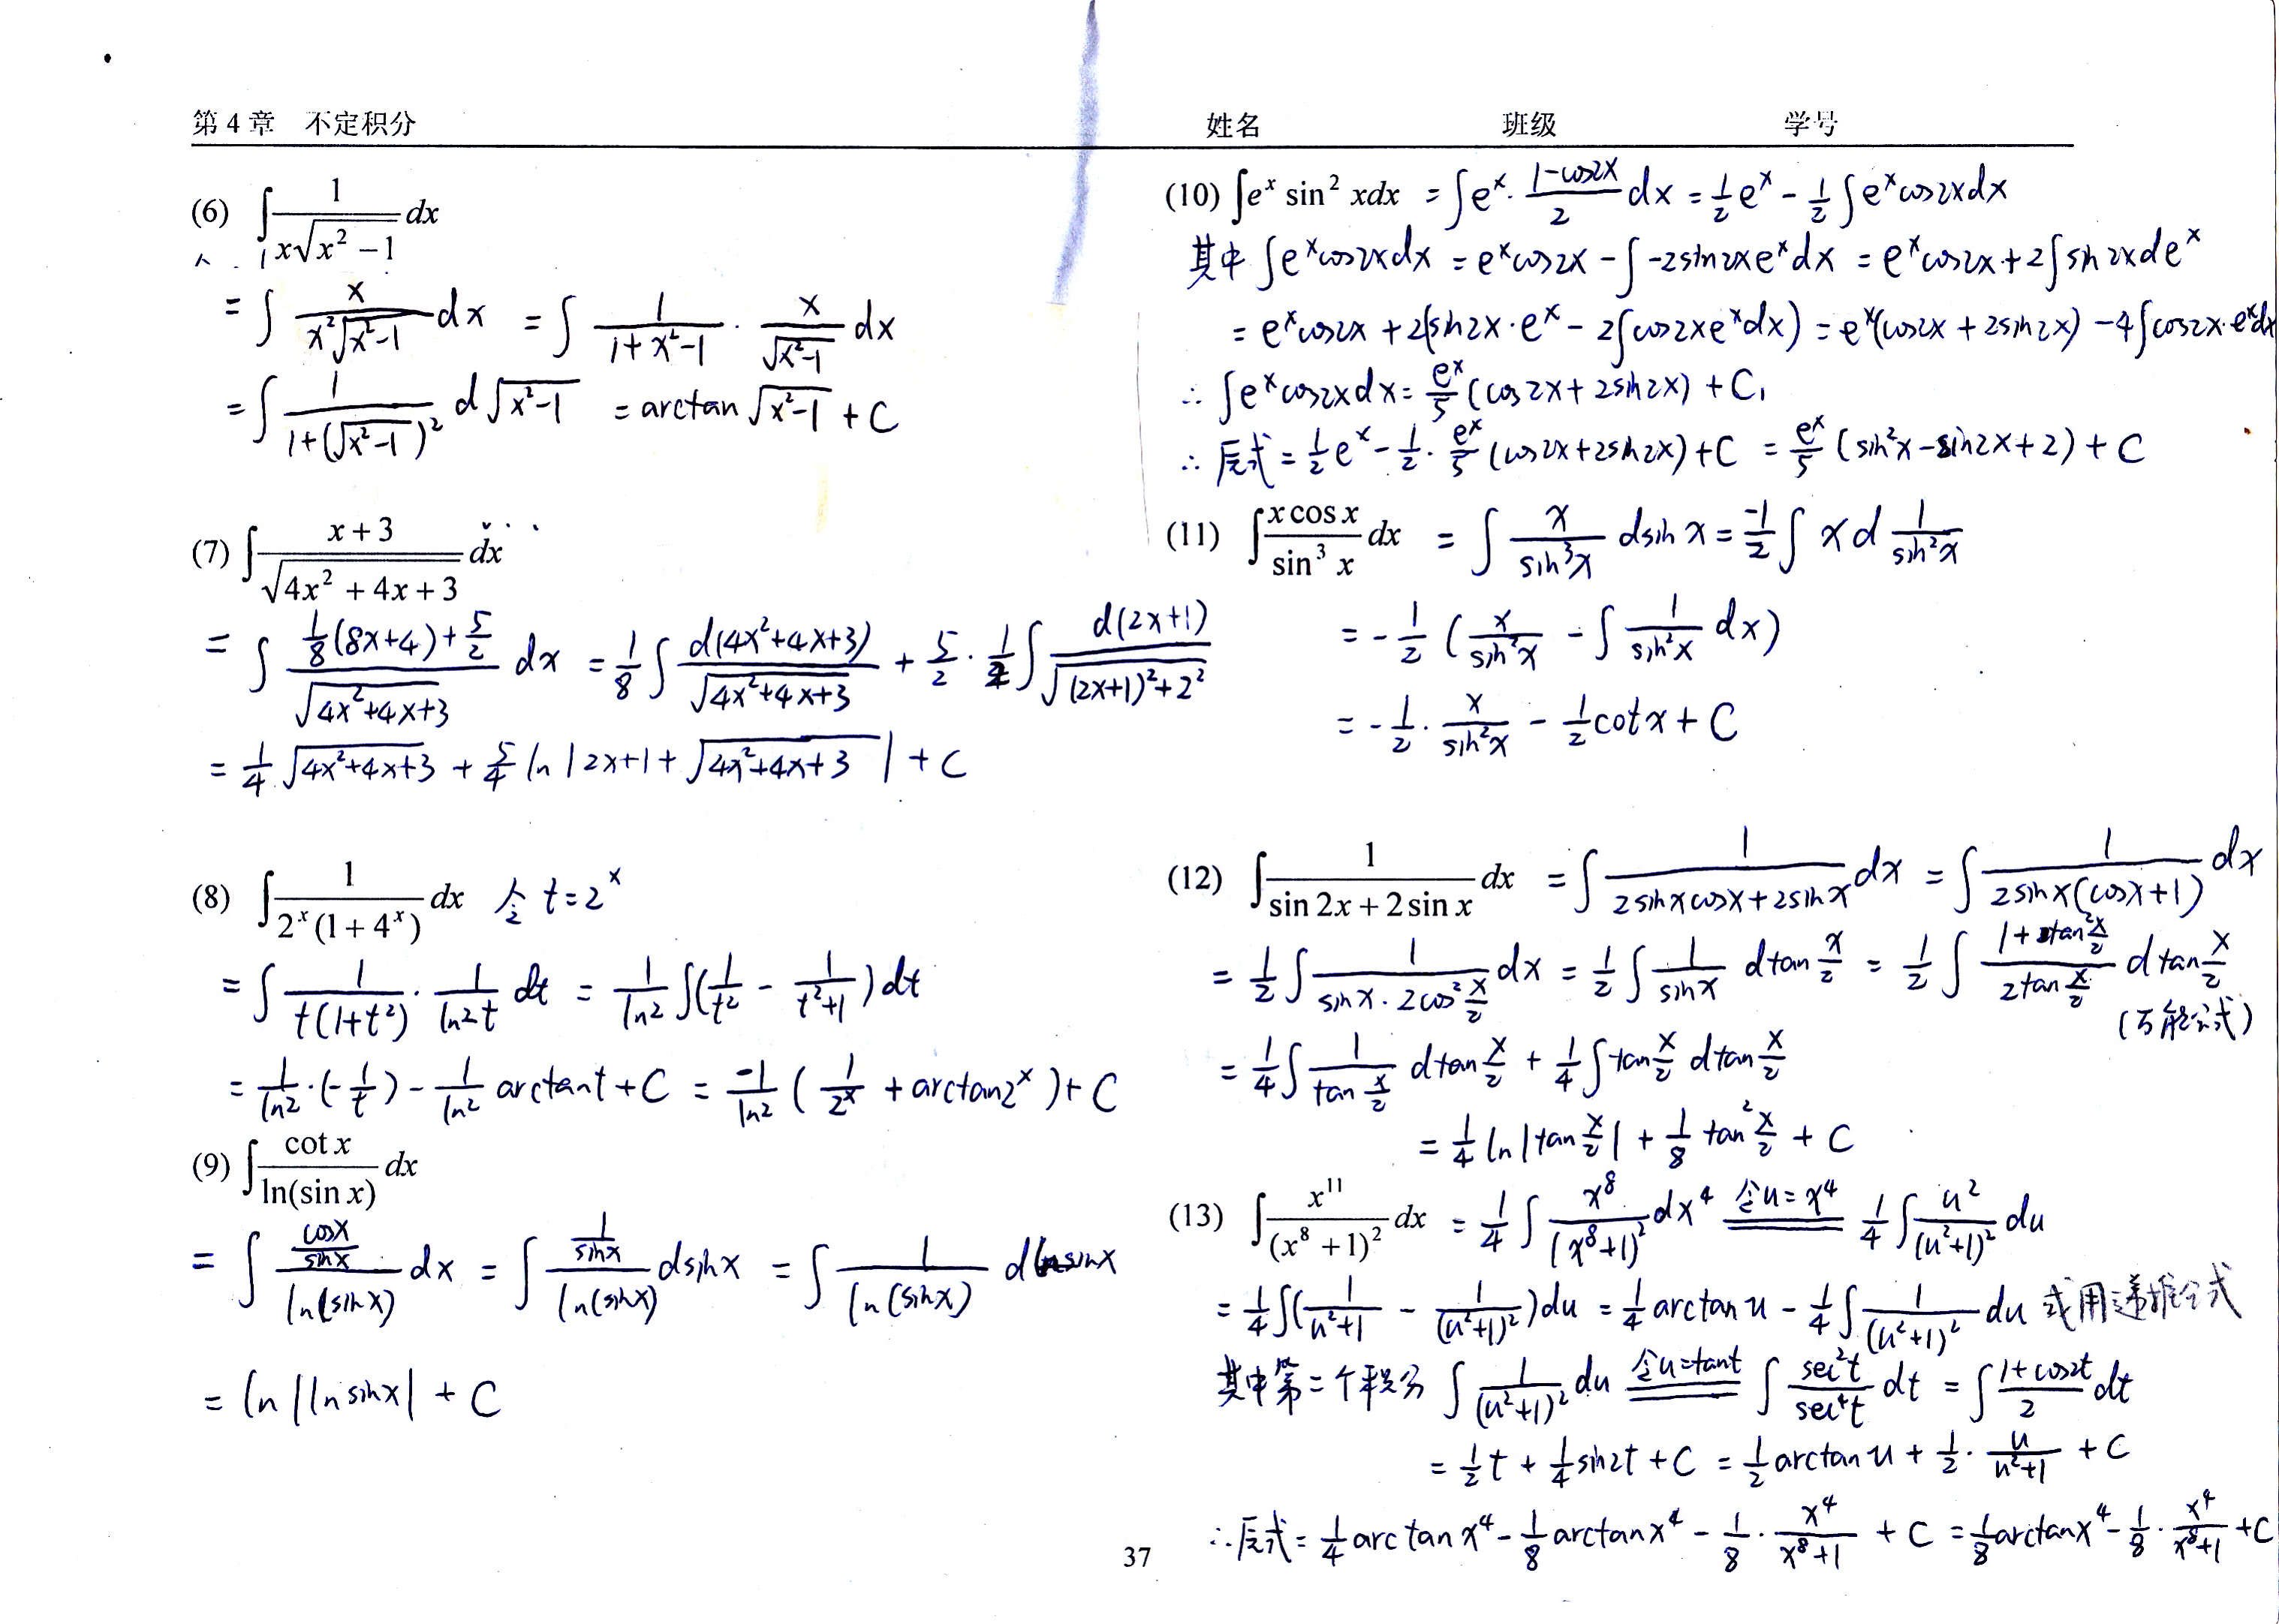 第 4 章 不定积分 姓名 班级 学号
(6) ∫ 1/(x√(x²−1)) dx
= ∫ x/(x²√(x²-1)) dx = ∫ 1/(1+x²-1) · x/√(x²-1) dx
= ∫ 1/(1+(√(x²-1))²) d√(x²-1) = arctan √(x²-1) + C
(7) ∫ (x+3)/√(4x²+4x+3) dx
= ∫ (1/8(8x+4)+5/2)/√(4x²+4x+3) dx = 1/8 ∫ d(4x²+4x+3)/√(4x²+4x+3) + 5/2 · 1/2 ∫ d(2x+1)/√((2x+1)²+2²)
= 1/4 √(4x²+4x+3) + 5/4 ln|2x+1+√(4x²+4x+3)| + C
(8) ∫ 1/(2ˣ(1+4ˣ)) dx 令 t=2ˣ
= ∫ 1/(t(1+t²)) · 1/(ln2 t) dt = 1/ln2 ∫(1/t² - 1/(t²+1)) dt
= 1/ln2 ·(-1/t) - 1/ln2 arctant + C = -1/ln2 (1/2ˣ + arctan2ˣ) + C
(9) ∫ cot x/ln(sin x) dx
= ∫ (cosx/sinx)/ln(sinx) dx = ∫ (1/sinx)/ln(sinx) dsinx = ∫ 1/ln(sinx) dlnsinx
= ln|lnsinx| + C
(10) ∫eˣ sin² xdx = ∫eˣ· (1-cos2x)/2 dx = 1/2 eˣ - 1/2 ∫eˣcos2xdx
其中 ∫eˣcos2xdx = eˣcos2x - ∫-2sin2xeˣdx = eˣcos2x+2∫sin2xdeˣ
= eˣcos2x + 2(sin2x·eˣ - 2∫cos2xeˣdx) = eˣ(cos2x+2sin2x) -4∫cos2x·eˣdx
∴ ∫eˣcos2xdx = eˣ/5 (cos2x+2sin2x) + C₁
∴ 原式 = 1/2 eˣ - 1/2 · eˣ/5 (cos2x+2sin2x)+C = eˣ/5 (sin²x-sin2x+2) + C
(11) ∫ x cos x/sin³ x dx = ∫ x/sin³x dsinx = -1/2 ∫ x d 1/sin²x
= -1/2 (x/sin²x - ∫ 1/sin²x dx)
= -1/2 · x/sin²x - 1/2 cotx + C
(12) ∫ 1/(sin 2x+2 sin x) dx = ∫ 1/(2sinxcosx+2sinx) dx = ∫ 1/(2sinx(cosx+1)) dx
= 1/2 ∫ 1/(sinx·2cos²x/2) dx = 1/2 ∫ 1/sinx dtan x/2 = 1/2 ∫ (1+tan²x/2)/(2tan x/2) dtan x/2
(万能公式)
= 1/4 ∫ 1/(tan x/2) dtan x/2 + 1/4 ∫tan x/2 dtan x/2
= 1/4 ln|tan x/2| + 1/8 tan² x/2 + C
(13) ∫ x¹¹/(x⁸+1)² dx = 1/4 ∫ x⁸/(x⁸+1)² dx⁴ 令u=x⁴ 1/4 ∫ u²/(u²+1)² du
= 1/4 ∫(1/(u²+1) - 1/(u²+1)²)du = 1/4 arctan u - 1/4 ∫ 1/(u²+1)² du 或用递推公式
其中第二个积分 ∫ 1/(u²+1)² du 令u=tant ∫ sec²t/sec⁴t dt = ∫ (1+cos2t)/2 dt
= 1/2 t + 1/4 sin2t + C = 1/2 arctan u + 1/2 · u/(u²+1) + C
∴ 原式 = 1/4 arctan x⁴ - 1/8 arctanx⁴ - 1/8 · x⁴/(x⁸+1) + C = 1/8 arctanx⁴ - 1/8 · x⁴/(x⁸+1) + C
37